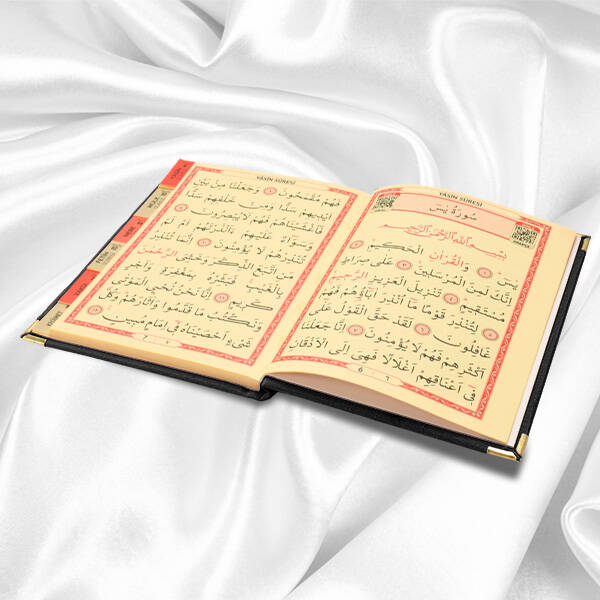 YÂSÎN SÛRESİ
سُورَةُ يٰسٓ
بِسْمِ اللّٰهِ الرَّحْمٰنِ الرَّحِيمِ
يٰسٓ ﴿١﴾ وَالْقُرْاٰنِ الْحَكِيمِ ﴿٢﴾
اِنَّكَ لَمِنَ الْمُرْسَلِينَ ﴿٣﴾ عَلٰى صِرَاطٍ
مُسْتَقِيمٍ ﴿٤﴾ تَنْزِيلَ الْعَزِيزِ الرَّحِيمِ ﴿٥﴾
لِتُنْذِرَ قَوْمًا مَا اُنْذِرَ اٰبَاؤُهُمْ فَهُمْ
غَافِلُونَ ﴿٦﴾ لَقَدْ حَقَّ الْقَوْلُ عَلٰى
اَكْثَرِهِمْ فَهُمْ لَا يُؤْمِنُونَ ﴿٧﴾ اِنَّا جَعَلْنَا
فِٓي اَعْنَاقِهِمْ اَغْلَالًا فَهِيَ اِلَى الْاَذْقَانِ
6 ٦
YÂSÎN SÛRESİ
فَهُمْ مُقْمَحُونَ ﴿٨﴾ وَجَعَلْنَا مِنْ بَيْنِ
اَيْدِيهِمْ سَدًّا وَمِنْ خَلْفِهِمْ سَدًّا
فَاَغْشَيْنَاهُمْ فَهُمْ لَا يُبْصِرُونَ ﴿٩﴾
وَسَوَٓاءٌ عَلَيْهِمْ ءَاَنْذَرْتَهُمْ اَمْ لَمْ
تُنْذِرْهُمْ لَا يُؤْمِنُونَ ﴿١٠﴾ اِنَّمَا تُنْذِرُ
مَنِ اتَّبَعَ الذِّكْرَ وَخَشِيَ الرَّحْمٰنَ
بِالْغَيْبِ فَبَشِّرْهُ بِمَغْفِرَةٍ وَاَجْرٍ
كَرِيمٍ ﴿١١﴾ اِنَّا نَحْنُ نُحْيِ الْمَوْتٰى
وَنَكْتُبُ مَا قَدَّمُوا وَاٰثَارَهُمْ وَكُلَّ
شَيْءٍ اَحْصَيْنَاهُ فِٓي اِمَامٍ مُبِينٍ ﴿١٢﴾
7 ٧